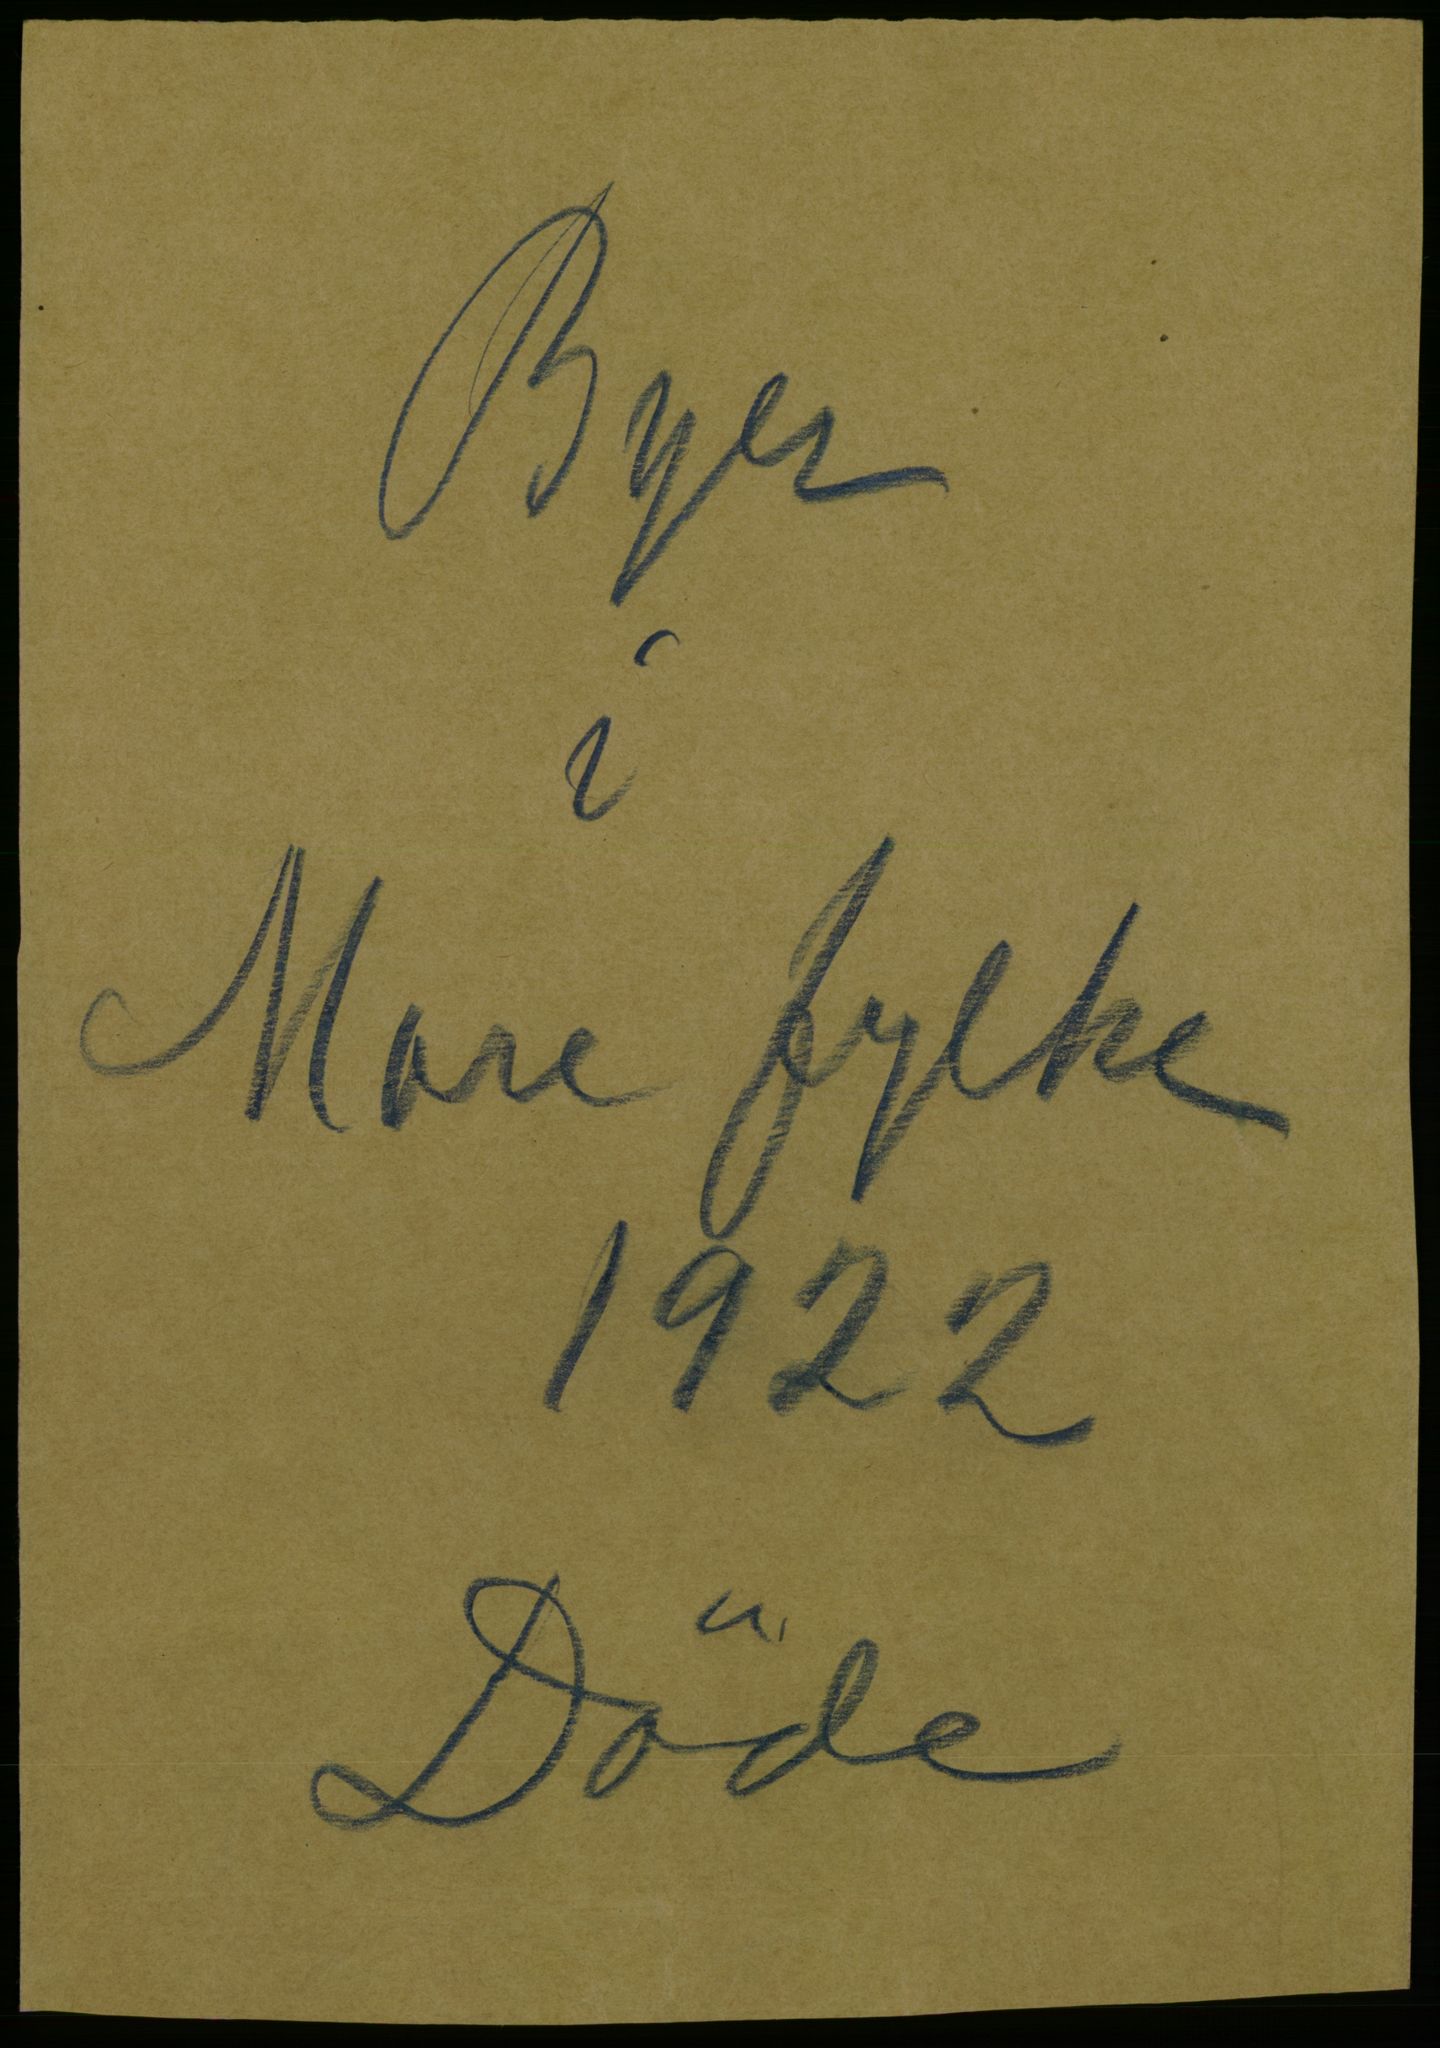 Byer
i
Møre fylke
1922
Döde